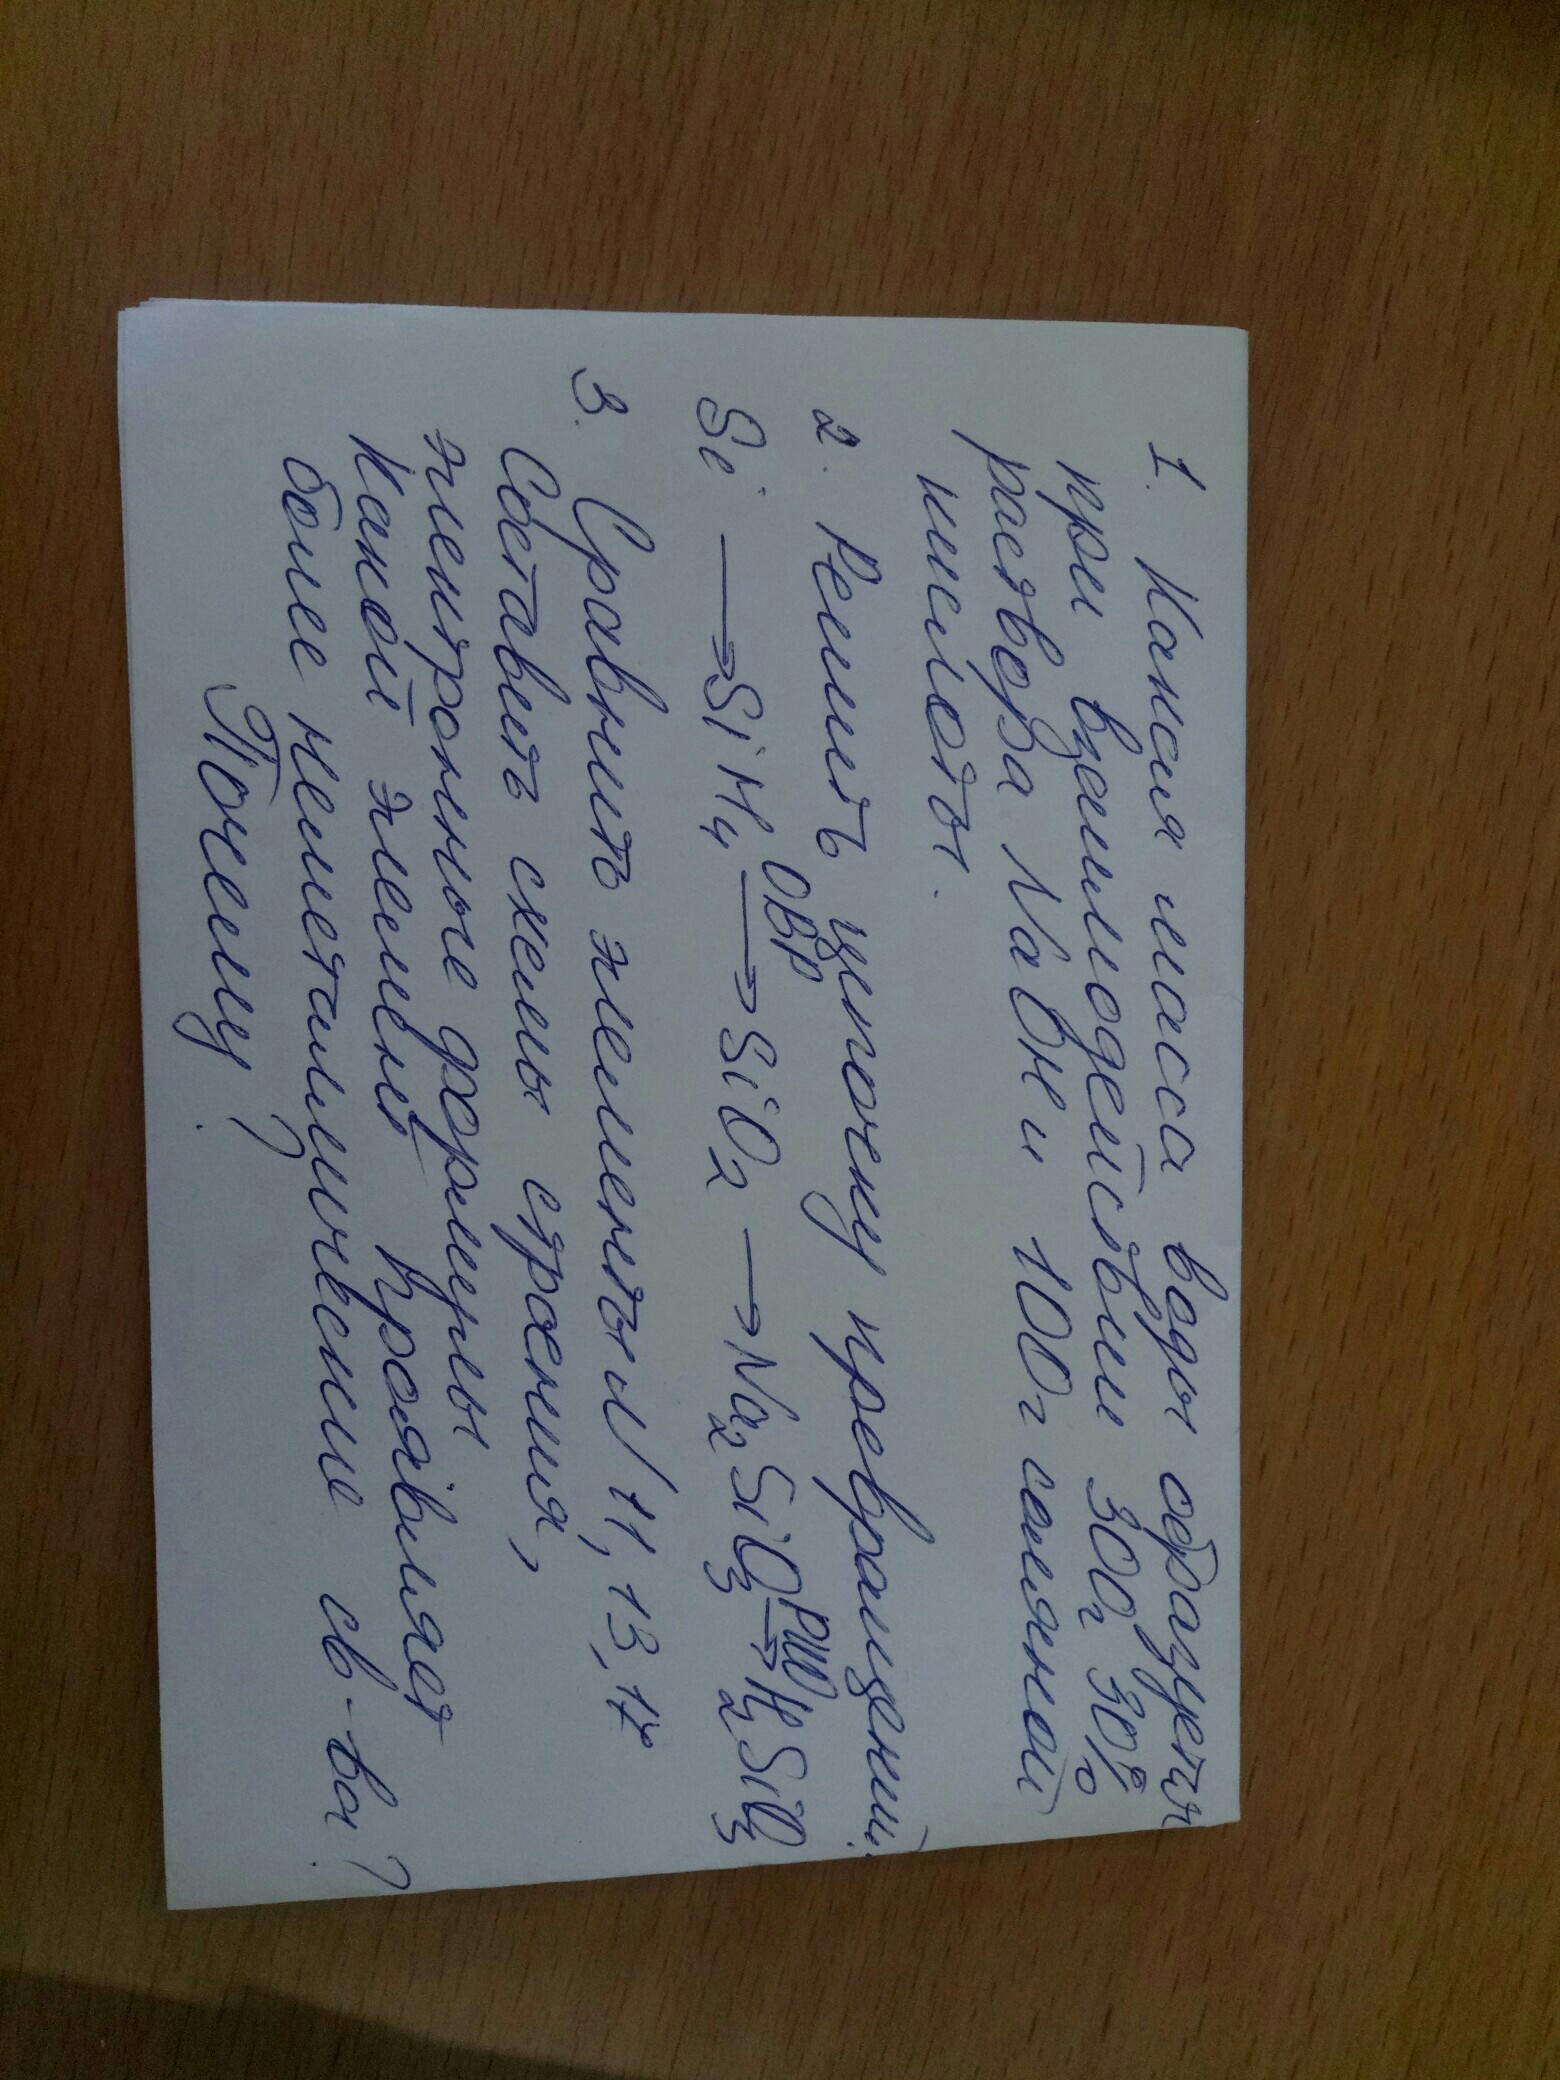 1. Какая масса воды образуется
при взаимодействии 300г 30%
раствора NaOH и 100г соляной
кислоты.
2. Решить цепочку превращений:
Si → SiH₄ ОВР→ SiO₂ → Na₂SiO₃ РИО→ H₂SiO₃
3. Сравнить элементы N 11, 13, 17
Составить схемы строения,
электронные формулы
Какой элемент проявляет
более неметаллические св-ва?
Почему?